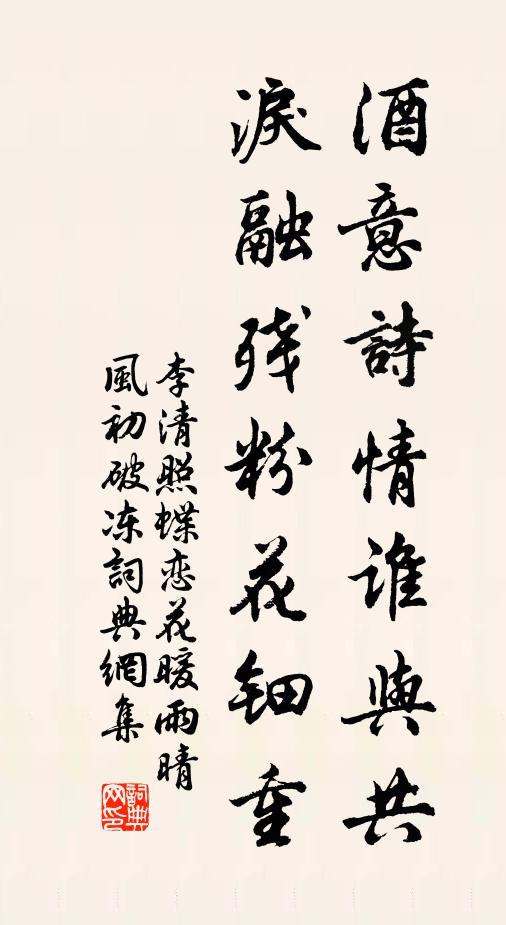 酒意詩情誰與共
淚融残粉花钿重
李清照蝶恋花暖雨晴
風初破冻詞典網集
詞典
网印